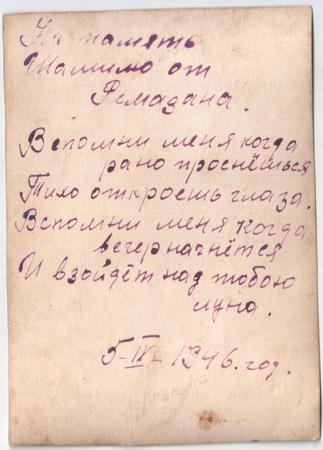 На память
Шалимо от
Ремазана.
Вспомни меня когда
рано проснёшься
Тихо откроешь глаза.
Вспомни меня когда
вечер начнётся
И взойдёт над тобою
луна.
5-IX-1946.год.